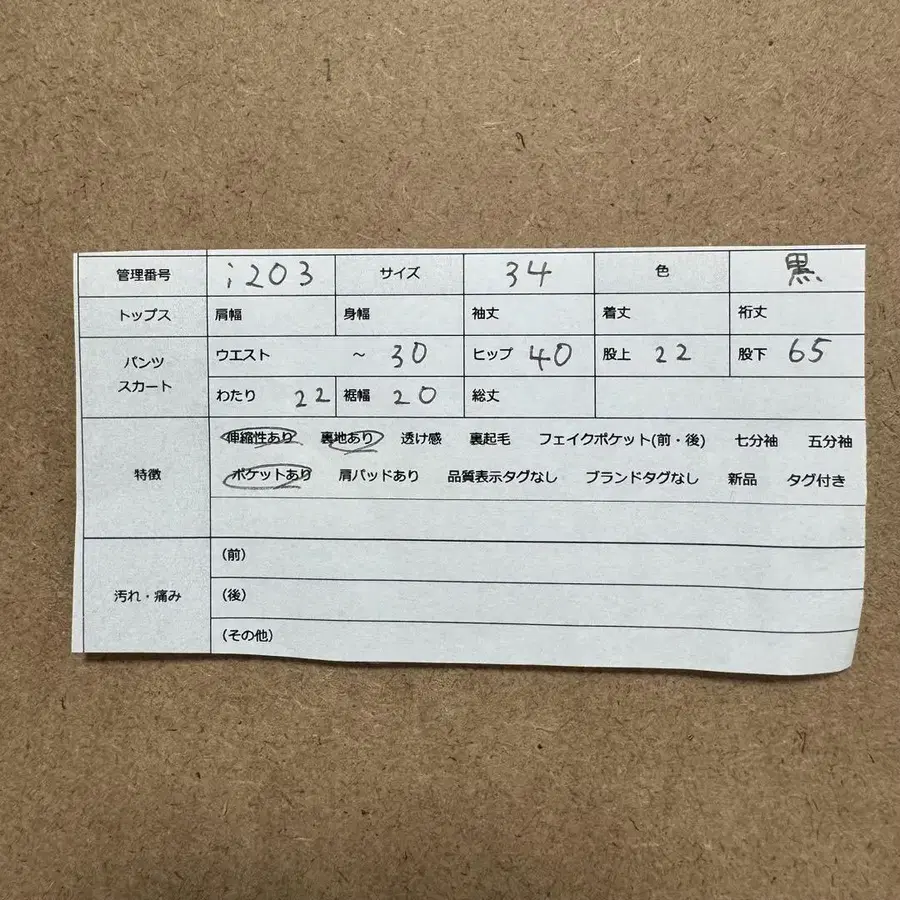 管理番号 i203 サイズ 34 色 黒
トップス 肩幅 身幅 袖丈 着丈 裄丈
パンツ スカート ウエスト ～ 30 ヒップ 40 股上 22 股下 65
わたり 22 裾幅 20 総丈
特徴 伸縮性あり 裏地あり 透け感 裏起毛 フェイクポケット(前・後) 七分袖 五分袖
ポケットあり 肩パッドあり 品質表示タグなし ブランドタグなし 新品 タグ付き
汚れ・痛み (前)
(後)
(その他)